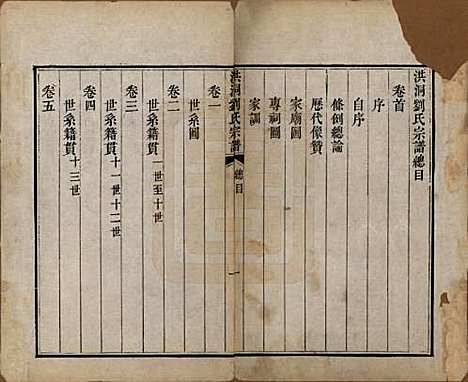 洪洞劉氏宗譜總目
卷首
序
自序
條例總論
歷代像贊
家廟圖
專祠圖
家訓
洪洞劉氏宗譜 總目 一
卷一
世系圖
卷二
世系籍貫 一世至十世
卷三
世系籍貫 十一世十二世
卷四
世系籍貫 十三世
卷五